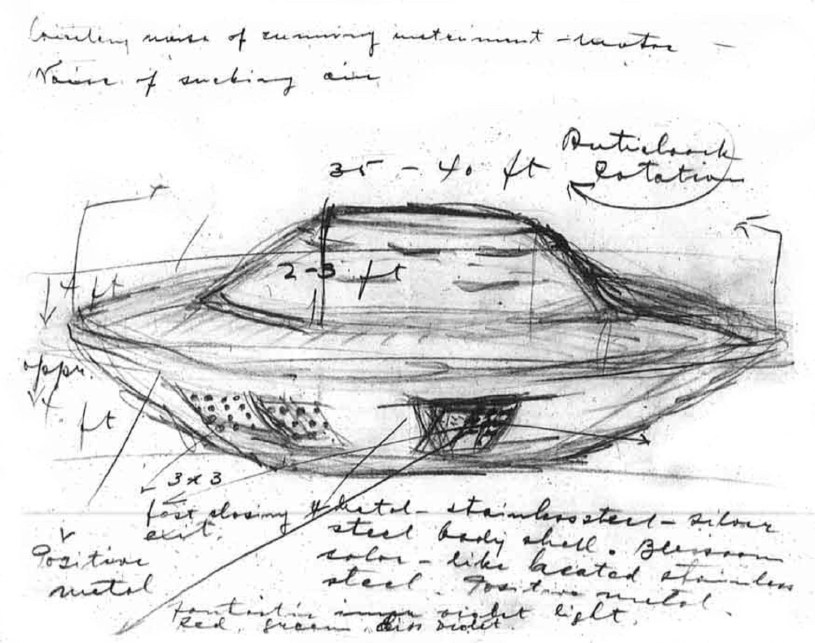 noise of running instrument - motor -
Noise of sucking air
Anticlock
Rotation
35 - 40 ft
2-3 ft
4 ft
appr.
4 ft
3x3
fast closing
exit.
Metal - stainless steel - silver
steel body shell. Blossom
color - like heated stainless
steel. Positive metal.
Positive
metal
fantastic inner violet light.
Red, green, violet.